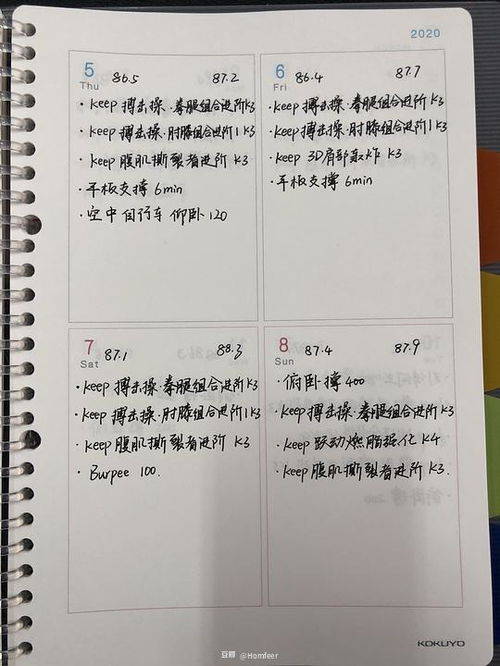 2020
5 Thu 86.5 87.2
· keep 搏击操·拳腿组合进阶 K3
· keep 搏击操·肘膝组合进阶1 K3
· keep 腹肌撕裂者进阶 K3
· 平板支撑 6min
· 空中自行车 仰卧 120
6 Fri 86.4 87.7
· keep 搏击操·拳腿组合进阶 K3
· keep 搏击操·肘膝组合进阶1 K3
· keep 3D肩部轰炸 K3
· 平板支撑 6min
7 Sat 87.1 88.3
· keep 搏击操·拳腿组合进阶 K3
· keep 搏击操·肘膝组合进阶1 K3
· keep 腹肌撕裂者进阶 K3
· Burpee 100.
8 Sun 87.4 87.9
· 俯卧撑 400
· keep 搏击操·拳腿组合进阶 K3
· keep 跃动燃脂强化 K4
· keep 腹肌撕裂者进阶 K3.
KOKUYO
豆瓣 @Homfeer